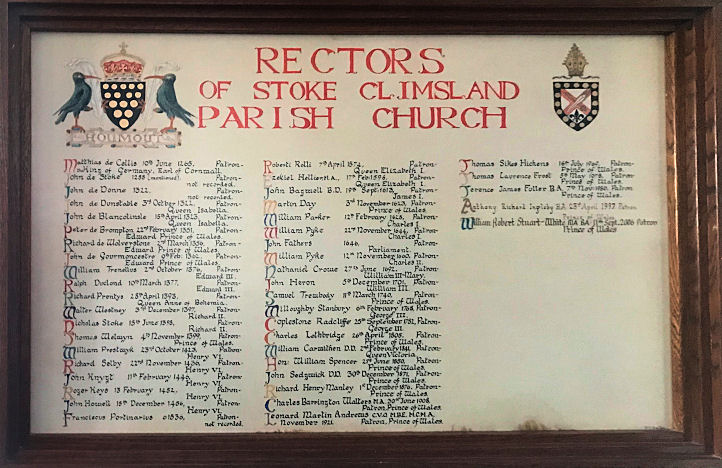 RECTORS
OF STOKE CLIMSLAND
PARISH CHURCH
HOUMOUT
Matthias de Cellis 10th June 1265. Patron-
King of Germany, Earl of Cornwall.
John de Stoke 1288 (mentioned). Patron-
not recorded.
John de Donne 1322. Patron-
not recorded.
John de Dunstable 3rd October 1322. Patron-
Queen Isabella.
John de Blancolinsle 15th April 1323. Patron-
Queen Isabella.
Peter de Brompton 22nd February 1351. Patron-
Edward Prince of Wales.
Richard de Wolverstone 2nd March 1356. Patron-
Edward Prince of Wales.
John de 9th Feb. 1362. Patron-
Edward Prince of Wales.
William Trenelius 2nd October 1376. Patron-
Edward III.
Ralph 10th March 1377. Patron-
Edward III.
Richard Prentys 28th April 1393. Patron-
Queen Anne of Bohemia.
Walter Westney 3rd December 1397. Patron-
Richard II.
Nicholas Stoke 15th June 1398. Patron-
Richard II.
Thomas Welwyn 4th November 1399. Patron-
Prince of Wales.
William Prestwyk 23rd October 1423. Patron-
Henry VI.
Richard Selby 22nd November 1436. Patron-
Henry VI.
John Knygt 11th February 1446. Patron-
Henry VI.
Roger Keys 13 February 1452. Patron-
Henry VI.
John Howell 18th December 1456. Patron-
Henry VI.
Franciscus Portinarius 1536. Patron-
not recorded.
Robert Roll 7th April 1574. Patron-
Queen Elizabeth I.
Ezekiel M.A. 17th Feb 1594. Patron-
Queen Elizabeth I.
John Bagwell B.D. 19th Sept. 1613. Patron-
James I.
Martin Day 3rd November 1623. Patron-
Prince of Wales.
William Parker 12th February 1625. Patron-
Charles I.
William Pyke 22nd November 1646. Patron-
Charles I.
John Fathers 1646. Patron-
Parliament.
William Pyke 12th November 1660. Patron-
Charles II.
Nathaniel Crowe 27th June 1692. Patron-
William III-Mary.
John Heron 5th December 1701. Patron-
William III.
Samuel Trewbody 11th March 1740. Patron-
Prince of Wales.
Willoughby Stanbury 6th February 1768. Patron-
George III.
Coplestone Radcliffe 25th September 1782. Patron-
George III.
Charles Lethbridge 26th April 1805. Patron-
Prince of Wales.
William Carwithen D.D. 2nd February 1841. Patron-
Queen Victoria.
Hon: William Spencer 27th June 1850. Patron-
Prince of Wales.
John Sedgwick D.D. 30th December 1871. Patron-
Prince of Wales.
Richard Henry Manley 1st December 1876. Patron-
Prince of Wales.
Charles Barrington Walters M.A. 30th June 1908.
Patron, Prince of Wales.
Leonard Martin Andrews C.V.O. M.B.E. M.C. M.A.
November 1921. Patron, Prince of Wales.
Thomas Sikes Hichens 16th July Patron-
Prince of Wales.
Thomas Lawrence Frost 5th May 1978. Patron-
Prince of Wales.
Terence James Foller B.A. 7th Nov 1980. Patron-
Prince of Wales.
Anthony Richard Ingleby M.A. 23rd April 1997. Patron-
Prince of Wales
William Robert Stuart-White MA BA 1st Sept. 2006 Patron
Prince of Wales